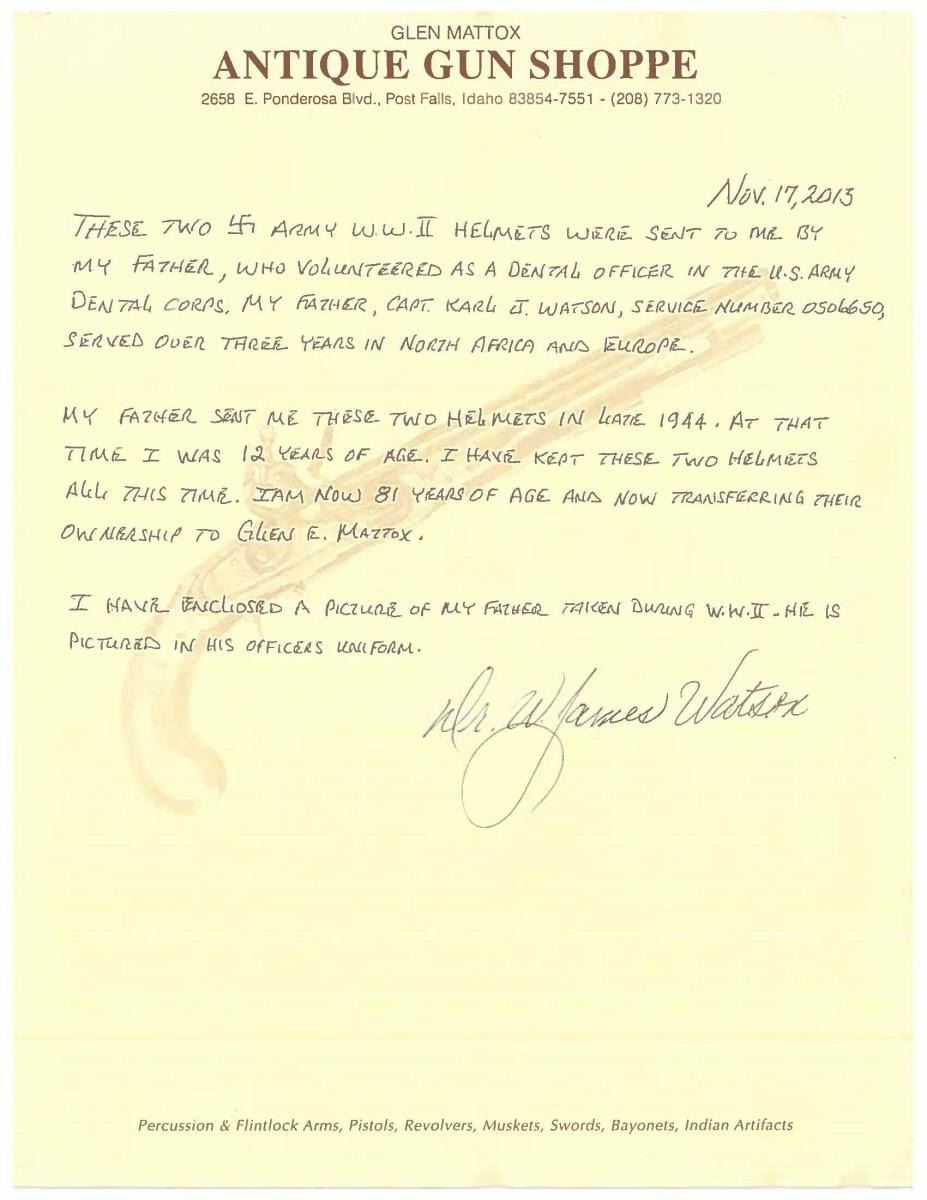 GLEN MATTOX
ANTIQUE GUN SHOPPE
2658 E. Ponderosa Blvd., Post Falls, Idaho 83854-7551 - (208) 773-1320
Nov. 17, 2013
THESE TWO 卐 ARMY W.W.II HELMETS WERE SENT TO ME BY
MY FATHER, WHO VOLUNTEERED AS A DENTAL OFFICER IN THE U.S. ARMY
DENTAL CORPS. MY FATHER, CAPT. KARL J. WATSON, SERVICE NUMBER 0506650,
SERVED OVER THREE YEARS IN NORTH AFRICA AND EUROPE.
MY FATHER SENT ME THESE TWO HELMETS IN LATE 1944. AT THAT
TIME I WAS 12 YEARS OF AGE. I HAVE KEPT THESE TWO HELMETS
ALL THIS TIME. I AM NOW 81 YEARS OF AGE AND NOW TRANSFERRING THEIR
OWNERSHIP TO GLEN E. MATTOX.
I HAVE ENCLOSED A PICTURE OF MY FATHER TAKEN DURING W.W.II - HE IS
PICTURED IN HIS OFFICERS UNIFORM.
Dr. W. James Watson
Percussion & Flintlock Arms, Pistols, Revolvers, Muskets, Swords, Bayonets, Indian Artifacts